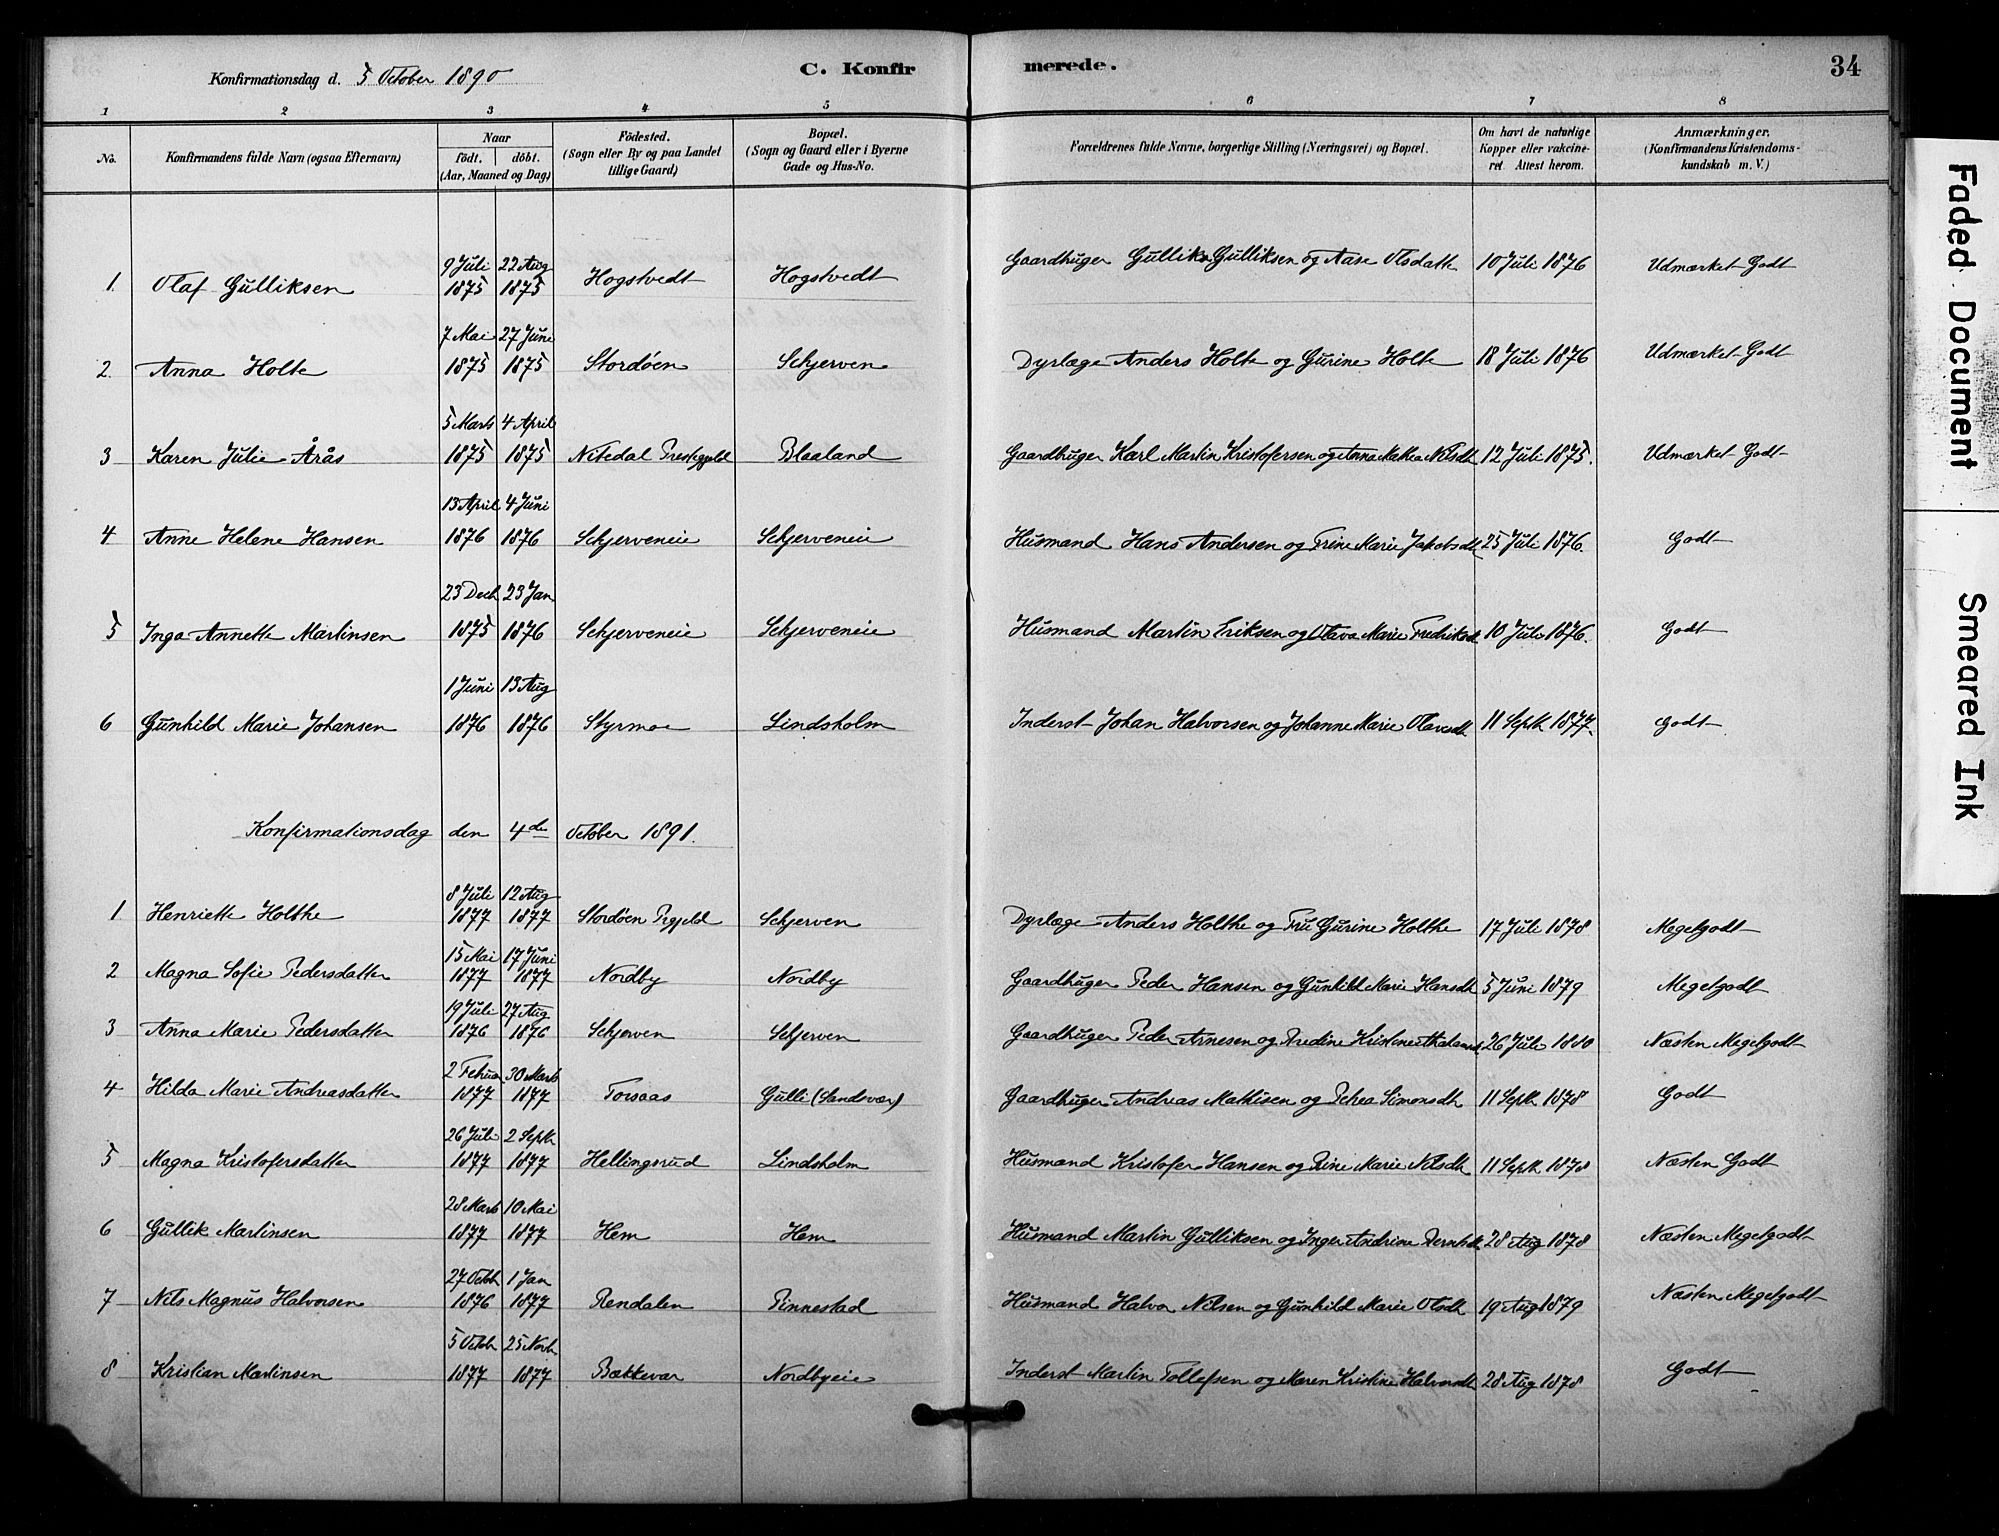 Konfirmationsdag d. 5 October 1890
C. Konfir merede. 34
1 2 3 4 5 6 7 8
No. Konfirmandens fulde Navn (ogsaa Efternavn) Naar födt. döbt. (Aar, Maaned og Dag) Födested. (Sogn eller By og paa Landet tillige Gaard) Bopæl. (Sogn og Gaard eller i Byerne Gade og Hus-No. Forældrenes fulde Navne, borgerlige Stilling (Næringsvei) og Bopæl. Om havt de naturlige Kopper eller vakcineret Attest herom. Anmærkninger. (Konfirmandens Kristendomskundskab m. V.)
1. Olaf Gulliksen 9 Juli 1875 22 Aug 1875 Hogstvedt Hogstvedt Gaardbruger Gullik Gulliksen og Aase Olsdatter 10 Juli 1876 Udmærket Godt
2. Anna Holte 7 Mai 1875 27 Juni 1875 Stordöen Schjerven Dyrlæge Anders Holte og Gurine Holte 18 Juli 1876 Udmærket Godt
3 Karen Julie Årås 5 Marts 1875 4 April 1875 Nitedal Prestegjeld Blaaland Gaardbruger Karl Martin Kristofersen og Anna Mathea Nilsdt 12 Juli 1875. Udmærket Godt
4 Anne Helene Hansen 13 April 1876 4 Juni 1876 Schjerveneie Schjerveneie Husmand Hans Andersen og Trine Marie Jakobsdt 25 Juli 1876. Godt
5 Inga Annette Martinsen 23 Decb 1875 23 Jan 1876 Schjerveneie Schjerveneie Husmand Martin Eriksen og Olava Marie Fredriksdt 10 Juli 1876. Godt
6 Gunhild Marie Johansen 1 Juni 1876 13 Aug 1876 Styrmoe Lindsholm Inderst Johan Halvorsen og Johanne Marie Olavesdt 11 Septb 1877. Godt
Konfirmationsdag den 4de October 1891.
1 Henriette Holthe 8 Juli 1877 12 Aug 1877 Stordöen Pgjeld Schjerven Dyrlæge Anders Holthe og Fru Gurine Holthe 17 Juli 1878 Megetgodt
2 Magna Sofie Pedersdatter 15 Mai 1877 17 Juni 1877 Nordby Nordby Gaardbruger Peder Hansen og Gunhild Marie Hansdt 5 Juni 1879 Megetgodt
3 Anna Marie Pedersdatter 19 Juli 1876 27 Aug 1876 Schjerven Schjerven Gaardbruger Peder Arnesen og 26 Juli 1880 Næsten Megetgodt
4 Hilda Marie Andreasdatter 2 Februar 1877 30 Marts 1877 Torsaas Gulli (Sandsvær) Gaardbruger Andreas Mathisen og Petrea Simonsdt 11 Septb 1878 Godt
5 Magna Kristofersdatter 26 Juli 1877 2 Septb 1877 Hellingsrud Lindsholm Husmand Kristofer Hansen og Marie Nilsdt 11 Septb 1878 Næsten Godt
6 Gullik Martinsen 28 Marts 1877 10 Mai 1877 Hem Hem Husmand Martin Gulliksen og Inger Andrine 28 Aug 1878 Næsten Megetgodt
7 Nils Magnus Halvorsen 27 Octob 1876 1 Jan 1877 Rendalen Pinnestad Husmand Halvor Nilsen og Gunhild Marie Olsdt 19 Aug 1879 Næsten Megetgodt
8 Kristian Martinsen 5 Octob 1877 25 Novb 1877 Bækkevar Nordbyeie Inderst Martin Tollefsen og Maren Kristine Halvorsdt 28 Aug 1878 Godt
Faded Document
Smeared Ink